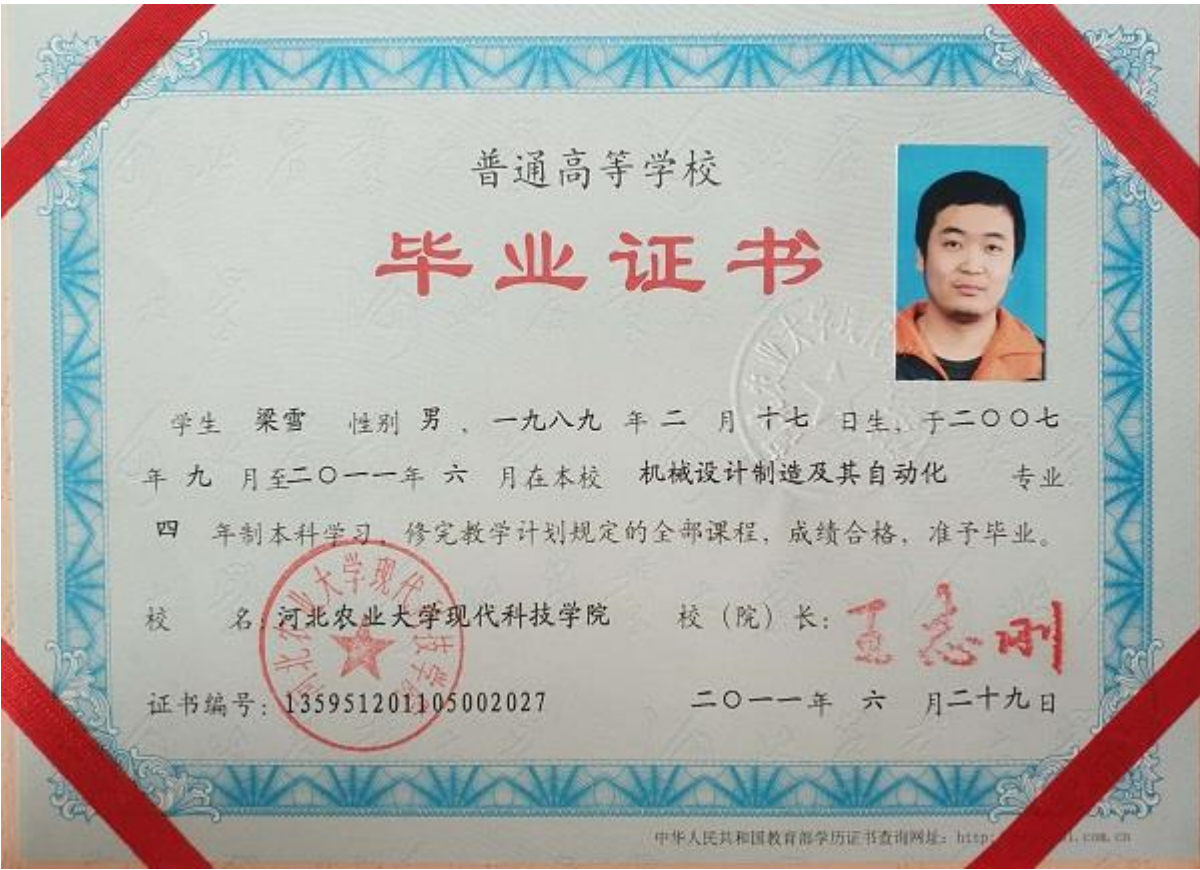 普通高等学校
毕业证书
学生 梁雪 性别 男 ，一九八九 年 二 月 十七 日生，于二〇〇七
年 九 月至二〇一一年 六 月在本校 机械设计制造及其自动化 专业
四 年制本科学习，修完教学计划规定的全部课程，成绩合格，准予毕业。
校 名：河北农业大学现代科技学院 校（院）长：王志刚
河北农业大学现代科技学院
证书编号：135951201105002027 二〇一一年 六 月二十九日
中华人民共和国教育部学历证书查询网址：http: